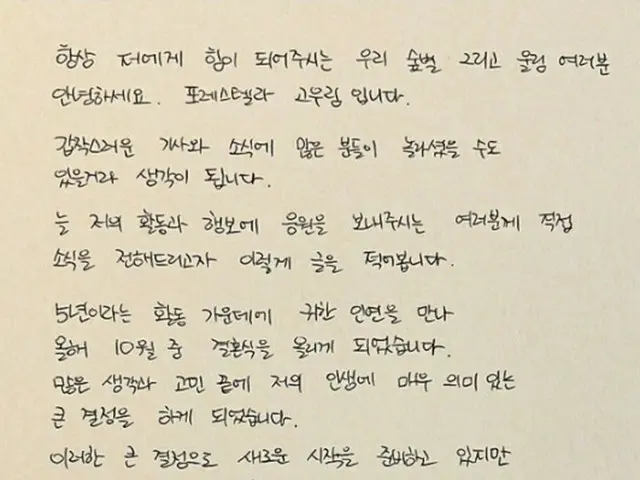 항상 저에게 힘이 되어주시는 우리 숲별 그리고 울림 여러분
안녕하세요. 포레스텔라 고우림 입니다.
갑작스러운 기사와 소식에 많은 분들이 놀라셨을 수도
있을거라 생각이 됩니다.
늘 저의 활동과 행보에 응원을 보내주시는 여러분께 직접
소식을 전해드리고자 이렇게 글을 적어봅니다.
5년이라는 활동 가운데에 귀한 인연을 만나
올해 10월 중 결혼식을 올리게 되었습니다.
많은 생각과 고민 끝에 저의 인생에 매우 의미있는
큰 결정을 하게 되었습니다.
이러한 큰 결정으로 새로운 시작을 준비하고 있지만